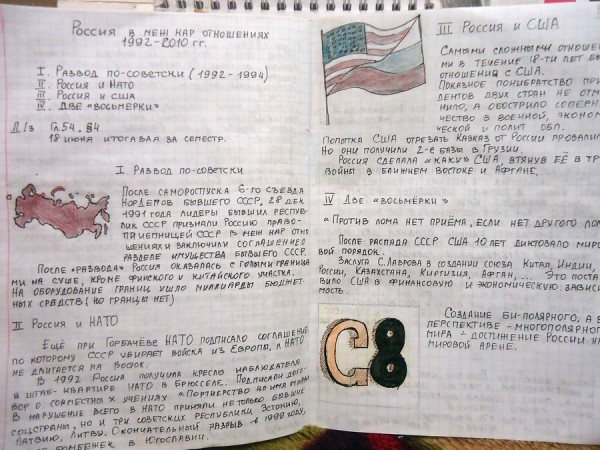 Россия в меж нар отношениях
1992-2010 гг.
I. Развод по-советски (1992-1994)
II. Россия и НАТО
III. Россия и США
IV. Две «восьмерки»
Д/з Гл 54, §4
18 июня итогавая за семестр.
I. Развод по-советски
После самороспуска 6-го съезда
нордепов бывшего СССР, 28 дек
1991 года лидеры бывших респуб-
лик СССР признали Россию право-
приемницей СССР в меж нар отно
шениях и заключили соглашение о
разделе имущества бывшего СССР.
После «развода» Россия оказалась с голыми граница
ми на суше, кроме финского и китайского участка.
На оборудование границ ушло миллиарды бюджет-
ных средств (но границы нет)
II Россия и НАТО
Ещё при Горбачёве НАТО подписало соглашение
по которому СССР убирает войска из Европы, а НАТО
не двигается на Восток.
В 1992 Россия получила кресло наблюдателя
в штаб-квартире НАТО в Брюсселе. Подписали дого-
вор о совместных учениях «Партнерство во имя мира»
В нарушение всего в НАТО приняли не только бывшие
соцстраны, но и три советских республики Эстонию,
Латвию, Литву. Окончательный разрыв в 1999 году,
бомбежек в Югославии.
III Россия и США
Самыми сложными отношени
ми в течение 18-ти лет бы
отношения с США.
Показное понибратство през
дентов двух стран не отме
нило, а обострило соперни
чество в военной, эконом
ческой и полит обл.
Попытка США отрезать Кавказ от России провали
Но они получили 2-е базы в Грузии.
Россия сделала «каку» США, втянув её в тр
войны в Ближнем Востоке и Афгане.
IV Две «восьмёрки»
«Против лома нет приёма, если нет другого лом
После распада СССР США 10 лет диктовало миро
вой порядок.
Заслуга С.Лаврова в создании союза Китая, Индии,
России, Казахстана, Киргизия, Афган, ... Это поста
вило США в финансовую и экономическую завис
мость.
G8
Создание би-полярного, а в
перспективе - многополярного
мира - достинение России на
мировой арене.